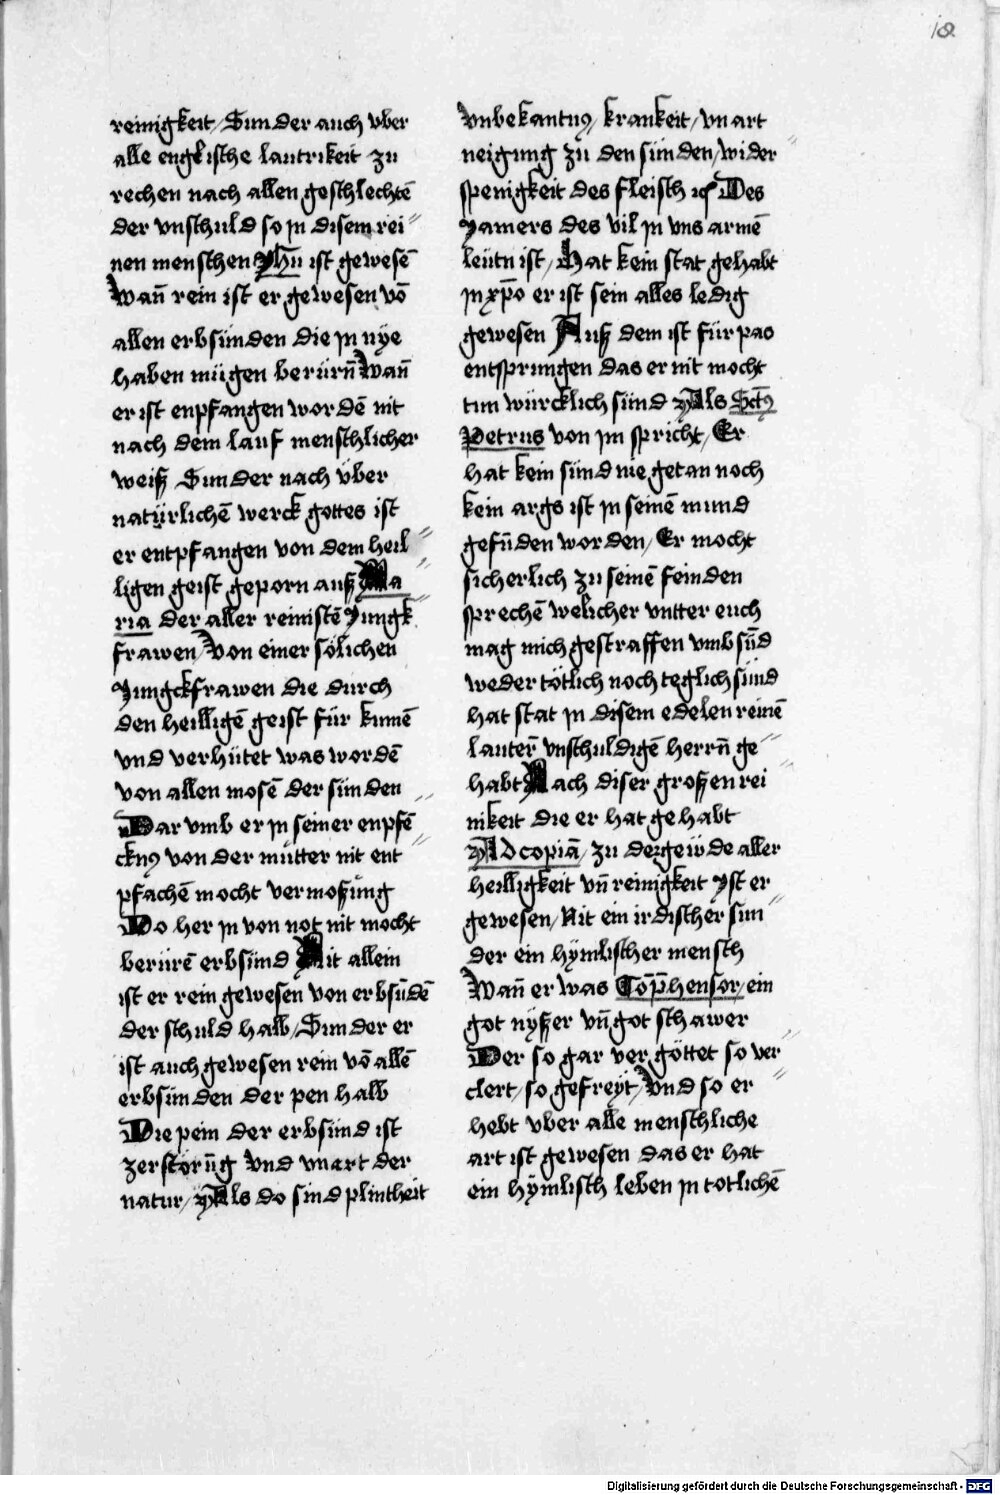 18
reinigkeit/ Sunder auch vber
alle englische lautrikeit zu
rechen nach allen geschlechtē
der vnschuld so in disem rei〃
nen menschen yhū ist gewesē
Wañ rein ist er gewesen vō
allen erbsünden die jn nye
haben mügen berürn̄ Wañ
er ist enpfangen wordē nit
nach dem lauf menschlicher
weiß Sunder nach über
natürlichē werck gottes ist
er entpfangen von dem heil〃
ligen geist geporn auß Ma〃
ria der aller reinistē Jungk〃
frawen/ Von einer sölichen
Jungckfrawen die durch
den heilligē geist für kumē
vnd verhütet was wordē
von allen mosē der sünden
Dar vmb er jn seiner enpfē〃
cknꝰ von der mütter nit ent〃
pfachē mocht vermoßung
Do her jn von not nit mocht
berürē erbsünd Nit allein
ist er rein gewesen von erbsūdē
der schuld halb/ Sunder er
ist auch gewesen rein vō allē
erbsünden der pen halb
Die pein der erbsünd ist
zerstörūg Vnd vnart der
natur/ Als do sind plintheit
Vnbekantnꝰ/ krankeit/ vnart
neigung zü den sünden/ wider〃
spenigkeit des fleisch ꝛc Des
Jamers des vil jn vns armē
leütn ist/ Hat kein stat gehabt
jn xp̄o er ist sein alles ledig
gewesen Auß dem ist für pas
entsprungen das er nit mocht
tun würcklich sünd Als Sctꝰ
Petrus von jm spricht/ Er
hat kein sünd nie getan noch
kein args ist jn seinē mund
gefūden worden/ Er mocht
sicherlich zu seinē feinden
sprechē welicher vntter euch
mag mich gestraffen vmb sūd
weder tötlich noch teglich sünd
hat stat jn disem edelen reinē
lauterͫ vnschuldigē herrn̄ ge〃
habt Nach diser großen rei〃
nikeit die er hat gehabt
Ad copiā/ zu dergewde aller
heilligkeit vn̄ reinigkeit yst er
gewesen/ Nit ein irdischer sun〃
der ein hÿmlischer mensch
Wañ er was Cōp̄hensor/ ein
got nyßer vn̄ got schawer
Der so gar vergöttet so ver〃
clert/ so gefreyt/ Vnd so er〃
hebt vber alle menschliche
art ist gewesen das er hat
ein hÿmlisch leben jn totlichē
Digitalisierung gefördert durch die Deutsche Forschungsgemeinschaft - DFG